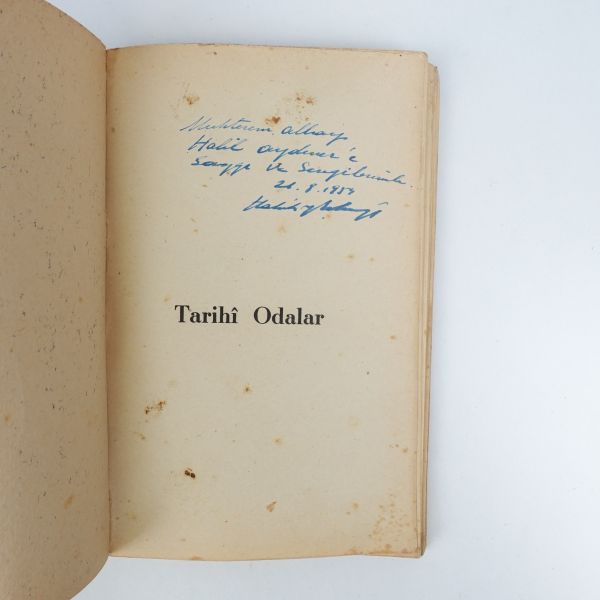 Muhterem albay
Halil aydıner'e
Saygı ve Sevgilerimle.
21.8.1954
Tarihî Odalar